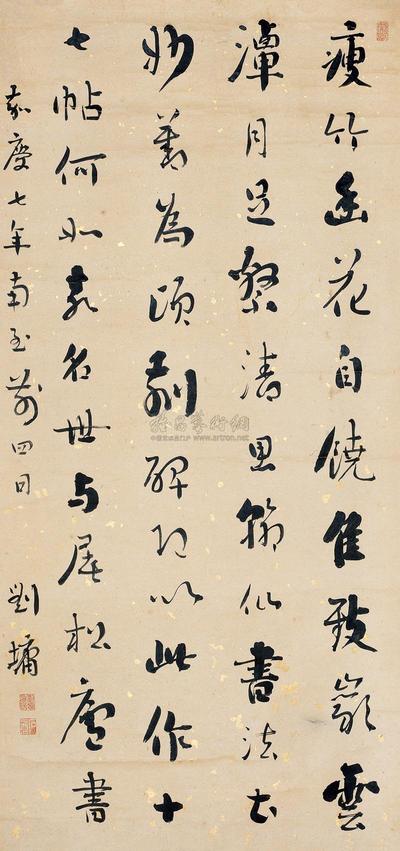 瘦竹幽花自饒佳致巖雲
潭月足發清思仙書法尤
妙為頌刻碑以此作十
七帖何名世与松廬書
嘉慶七年南至前四日
劉墉
雅昌藝術網
www.artron.net